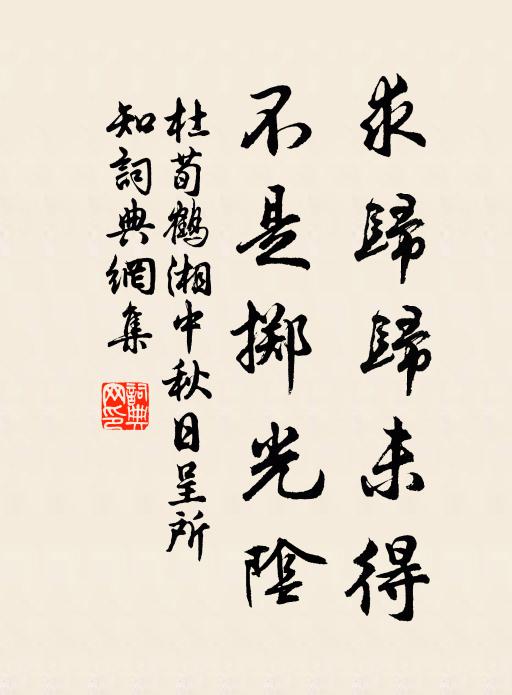 求歸歸未得
不是擲光陰
杜荀鶴湘中秋日呈所
知詞典網集
詞典
网印